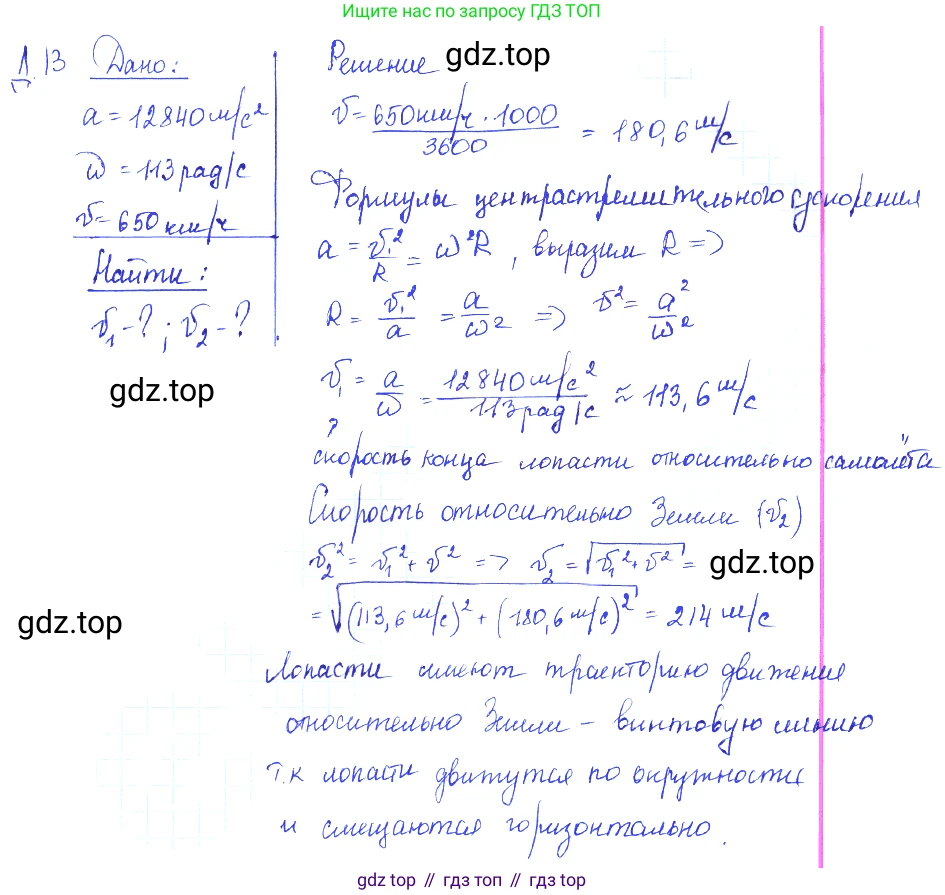 Ищите нас по запросу ГДЗ ТОП
Д.13 Дано:
a = 12840 м/с²
ω = 113 рад/с
v = 650 км/ч
Найти:
v₁ - ? ; v₂ - ?
gdz.top
Решение gdz.top
v = 650 км/ч · 1000 / 3600 = 180,6 м/с
Формулы центрастремительного ускорения
a = v₁²/R = ω²R , выразим R =>
R = v₁²/a = a/ω² => v² = a²/ω²
v₁ = a/ω = 12840 м/с² / 113 рад/с ≈ 113,6 м/с
скорость конца лопасти относительно самолёта
Скорость относительно Земли (v₂)
v₂² = v₁² + v² => v₂ = √(v₁² + v²) = gdz.top
= √((113,6 м/с)² + (180,6 м/с)²) = 214 м/с
gdz.top
Лопасти имеют траекторию движения
относительно Земли – винтовую линию
т.к лопасти движутся по окружности
и смещаются горизонтально.
gdz.top // гдз топ // gdz.top